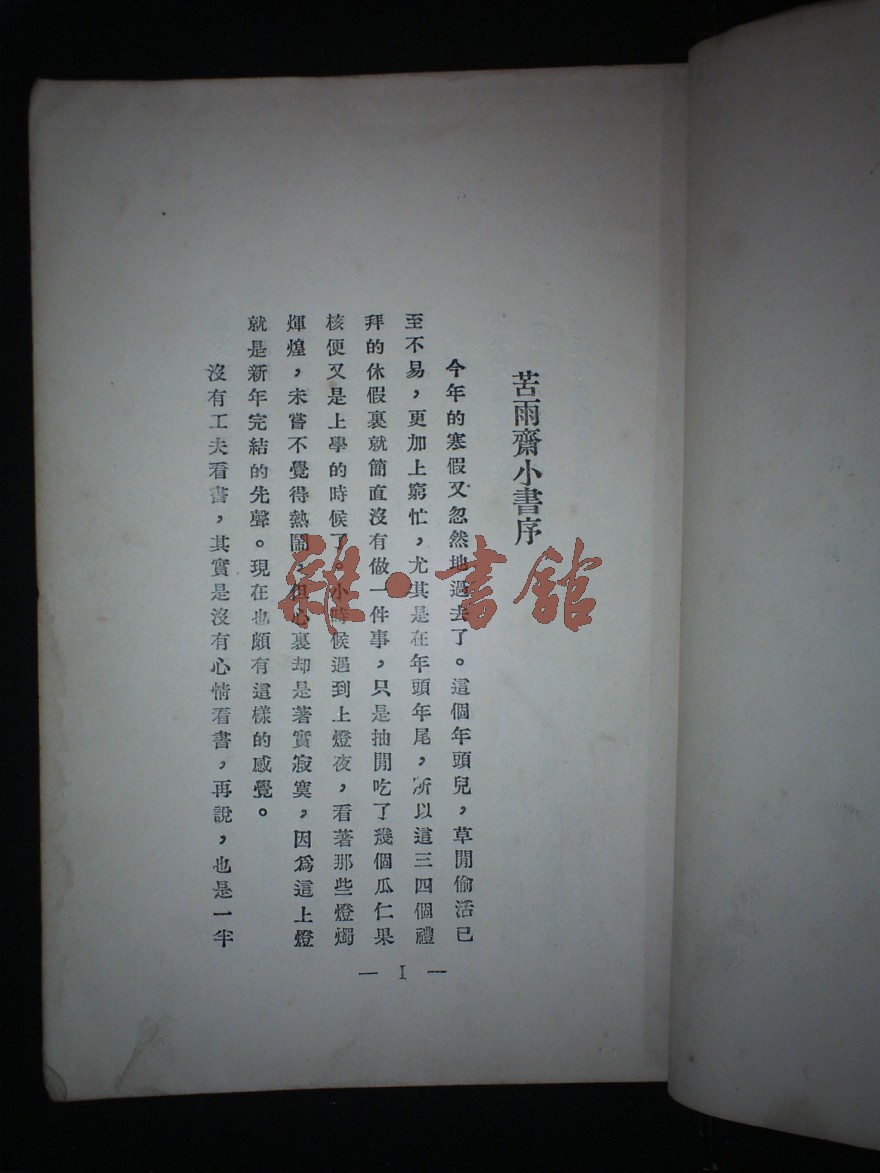 苦雨齋小書序
今年的寒假又忽然地過去了。這個年頭兒，草閒偷活已
至不易，更加上窮忙，尤其是在年頭年尾，所以這三四個禮
拜的休假裏就簡直沒有做一件事，只是抽閒吃了幾個瓜仁果
核便又是上學的時候了。小時候遇到上燈夜，看著那些燈燭
輝煌，未嘗不覺得熱鬧，但心裏却是著實寂寞，因爲這上燈
就是新年完結的先聲。現在也頗有這樣的感覺。
沒有工夫看書，其實是沒有心情看書，再說，也是一半
— I —
雜·書館